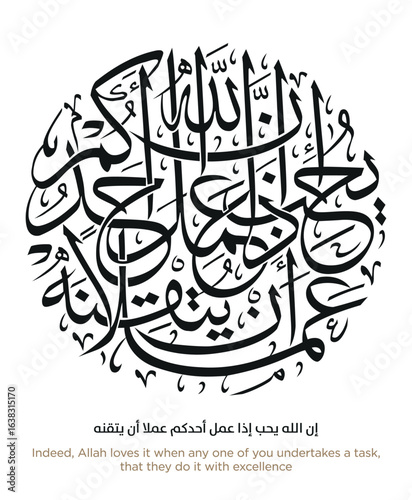 إن الله يحب إذا عمل أحدكم عملا أن يتقنه
إن الله يحب إذا عمل أحدكم عملا أن يتقنه
Indeed, Allah loves it when any one of you undertakes a task,
that they do it with excellence
Adobe Stock | #1638315170